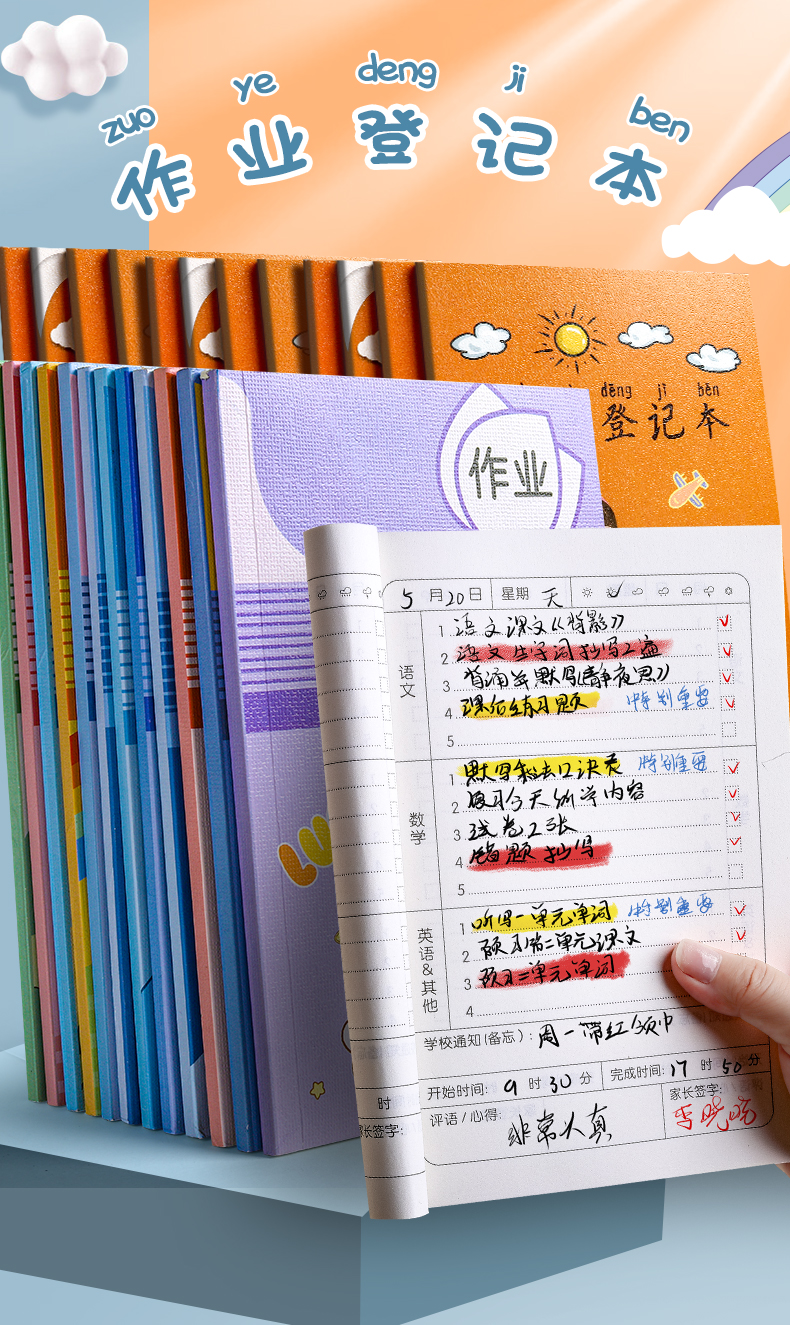 zuo ye deng ji ben
作业登记本
dēng jì běn
登记本
作业
LU
5月20日 星期 天
语文
1 语文课文《背影》
2 语文生字词抄写2遍
3 背诵并默写《静夜思》
4 课后练习题 特别重要
5
数学
1 默写乘法口诀表 特别重要
2 复习今天所学内容
3 试卷2张
4 错题抄写
5
英语&其他
1 听写一单元单词 特别重要
2 预习第二单元课文
3 预习二单元单词
4
学校通知(备忘): 周一带红领巾
开始时间: 9时30分 完成时间: 17时50分
评语/心得: 非常认真
家长签字:
李晓晓
时
家长签字: